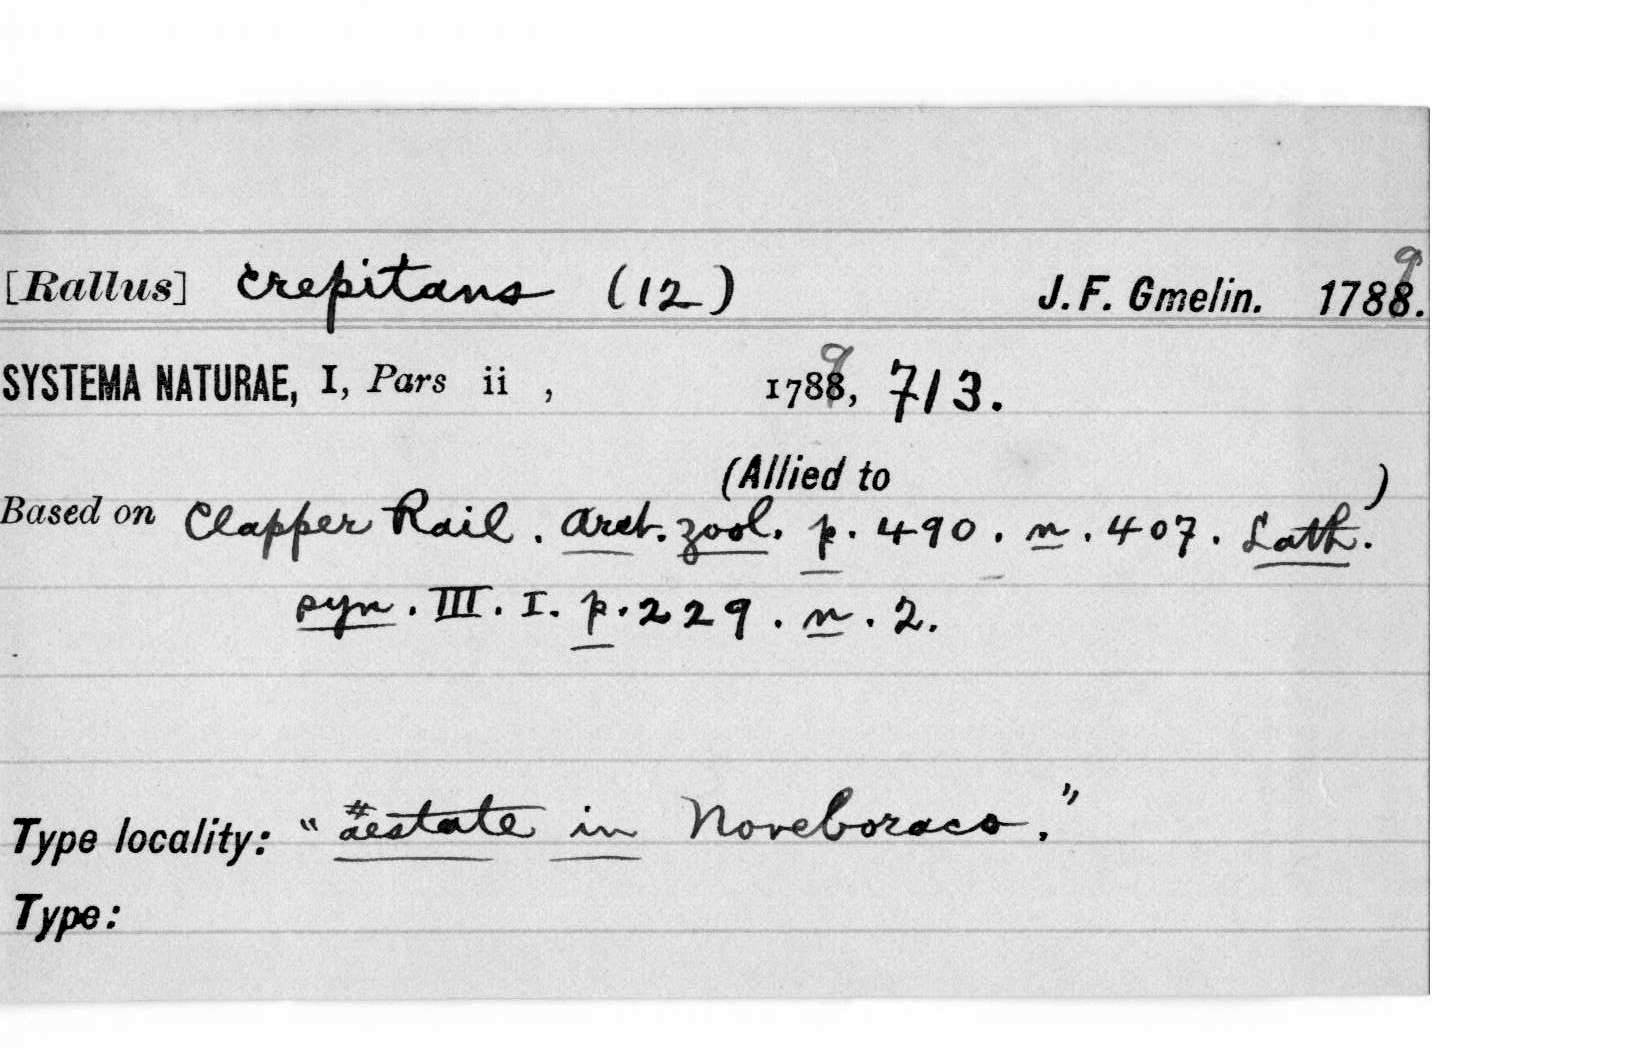 [Rallus] crepitans (12) J. F. Gmelin. 1789.
SYSTEMA NATURAE, I, Pars ii , 1789, 713.
(Allied to )
Based on Clapper Rail. Arct. zool. p. 490. n. 407. Lath.
syn. III. I. p. 229. n. 2.
Type locality: "aestate in Noveboraco."
Type: